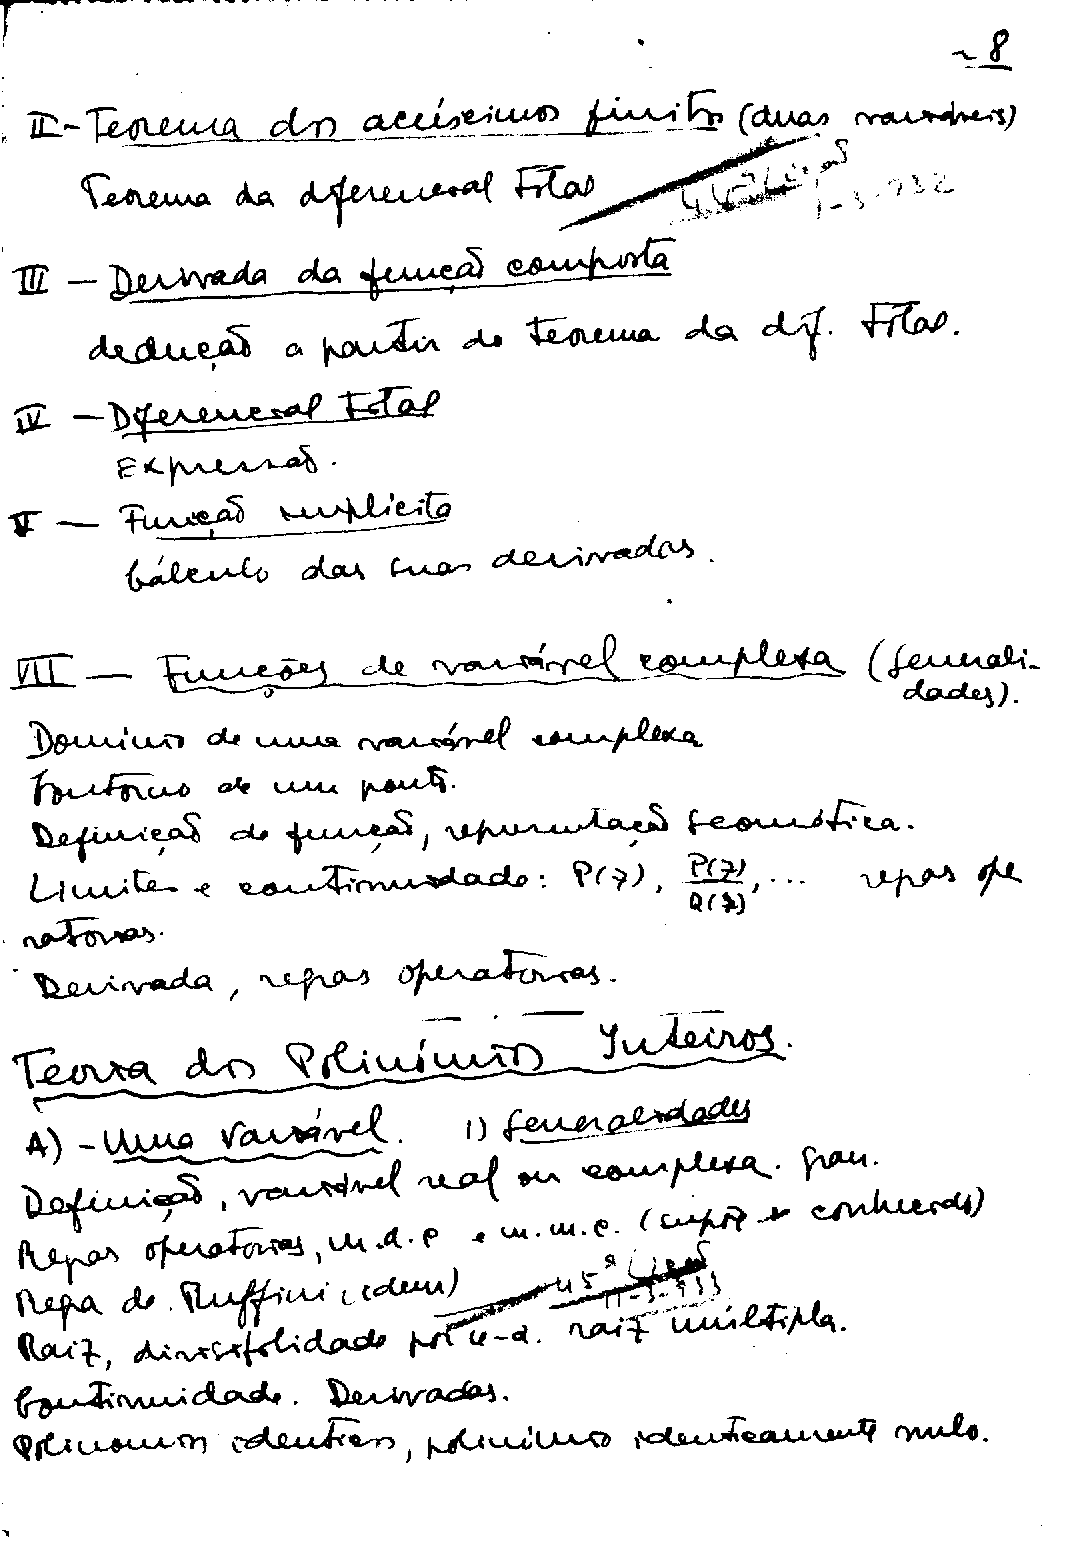 8
II - Teorema dos acréscimos finitos (duas variáveis)
Teorema da diferencial total
III - Derivada da função composta
dedução a partir do teorema da dif. total.
IV - Diferencial total
Expressão.
V - Função implícita
Cálculo das suas derivadas.
VII - Funções de variável complexa (generali-
dades).
Domínio de uma variável complexa
Contorno de um ponto.
Definição de função, representação geométrica.
Limites e continuidade: P(z), P(z)/Q(z), ... regras ope
ratórias.
Derivada, regras operatórias.
Teoria dos Polinómios Inteiros.
A) - Uma variável. 1) Generalidades
Definição, variável real ou complexa. grau.
Regras operatórias, m.d.c e m.m.c. (supõe-se conhecido)
Regra de Ruffini (idem) 45ª lição
11-3-933
Raiz, divisibilidade por x-a. raiz múltipla.
Continuidade. Derivadas.
Polinomios identicos, polinómio identicamente nulo.